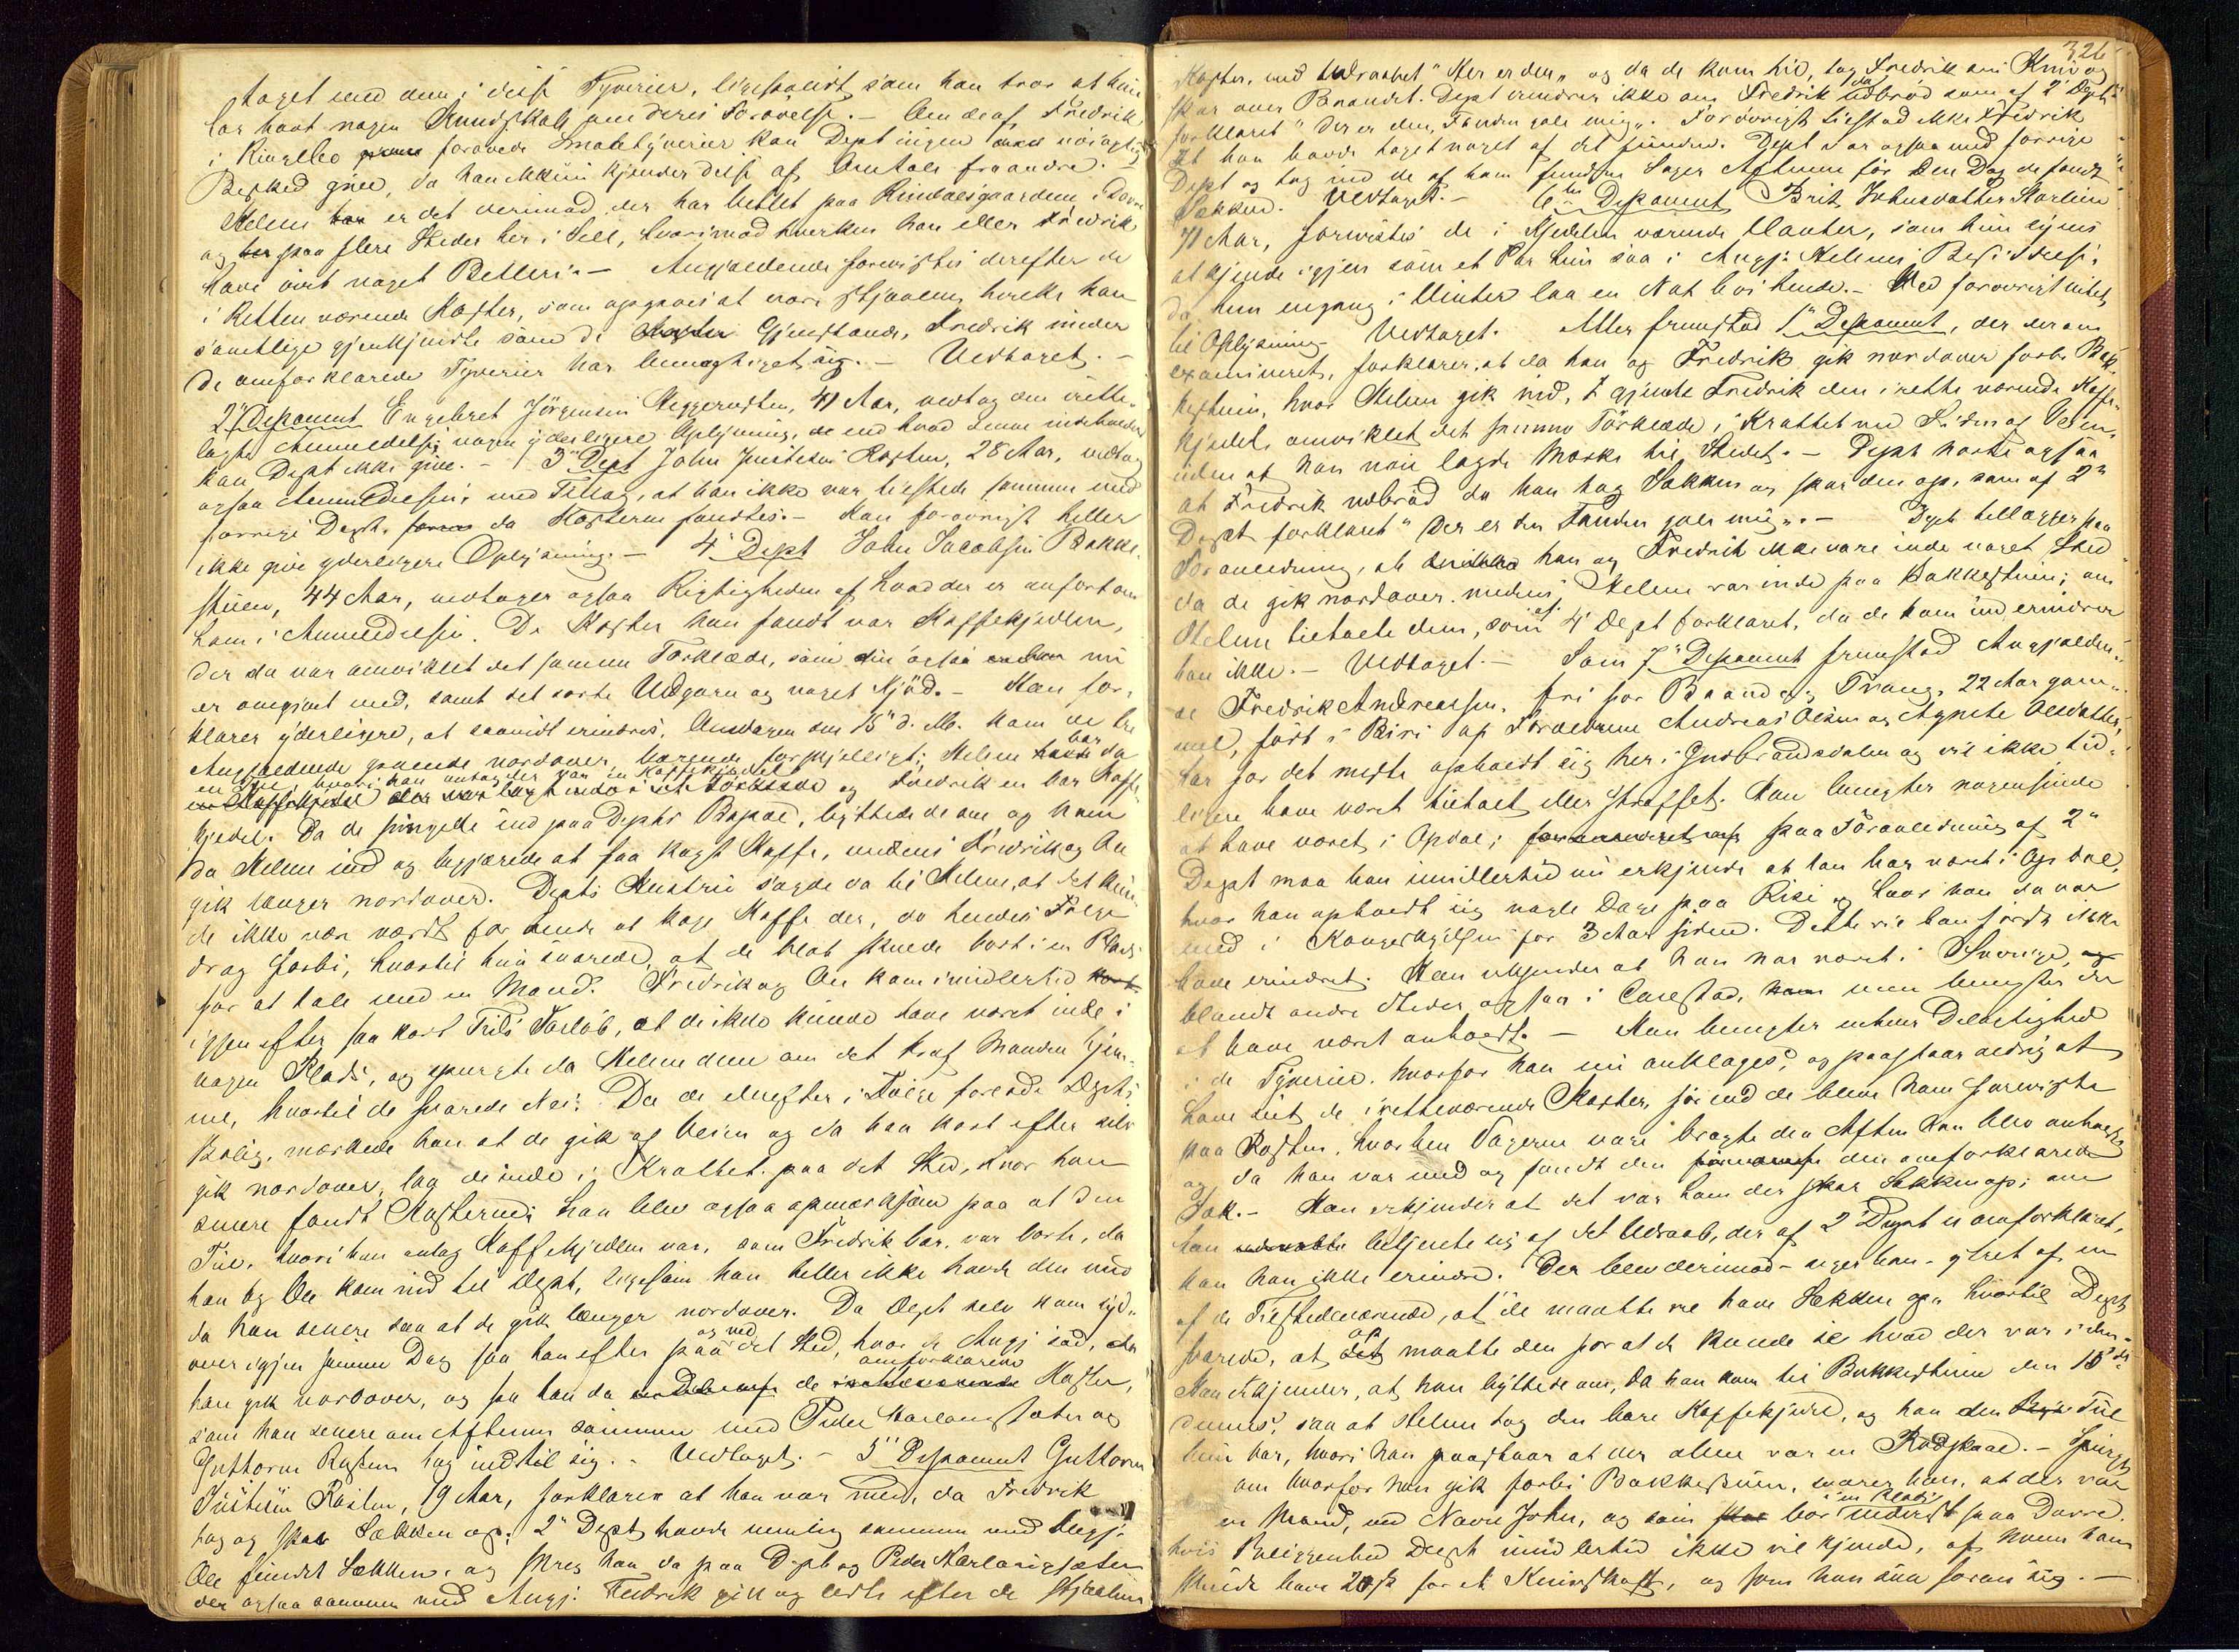 taget med dem i disse Tyverier, ligesaavidt som han tror at hun
har havt nogen Kundskab om deres Forøvelse. — Om de af Fredrik
i Ringebo forøvede Smaatyverier kan Dept ingen nøiagtig
Besked give, da han ikkun kjender disse af Omtale fra andre. —
Helene er det derimod der har betlet paa Rindalsgaardene i Dovre
og paa flere Steder her i Sell, hvorimod hverken han eller Fredrik
have øvet noget Betleri. — Angjældende forevistes derefter de
i Retten værende Koster, som opgaves at være stjaalne, hvilke han
samtlige gjenkjendte som de Gjenstande, Fredrik under
de omforklarede Tyverier har bemægtiget sig. — Vedtaget. —
2det Deponent Engebret Jörgensen Heggerusten, 41 Aar, vedtog den irette-
lagte Anmeldelse; nogen yderligere Oplysning, end hvad denne indeholder
kan Dept ikke give. — 3die Dept John Justesen Rosten, 28 Aar, vedtog
ogsaa Anmeldelsen med Tillæg, at han ikke var tilstede sammen med
forrige Dept. da Kosterne fandtes. — Kan forøvrigt heller
ikke give yderligere Oplysning. — 4de Dept John Jacobsen Bakke-
stuen, 44 Aar, vedtager ogsaa Rigtigheden af hvad der er anført om
ham i Anmeldelsen. De Koster han fandt var Kaffekjedlen,
der da var omviklet det samme Törklæde, som den ogsaa nu
er omgivet med, samt det sorte Uldgarn og noget Kjød. — Han for-
klarer yderligere, at saavidt erindres, Onsdagen den 15de d. M. kom de tre
Angjældende gaaende nordover, bærende forskjelligt; Helene bar da
en Tine, hvori han antog der var en Kaffekjedel og Fredrik en bar Kaffe-
kjedel. Da de svingede ind paa Depts Bopæl, byttede de om og kom
da Helene ind og begjærede at faa kogt Kaffe, medens Fredrik og Ole
gik længer nordover. Depts Hustru sagde da til Helene, at det kun-
de ikke være værdt for hende at koge Kaffe der, da hendes Følge
drog forbi, hvortil hun svarede, at de blot skulde bort i en Plads
for at tale med en Mand. Fredrik og Ole kom imidlertid
igjen efter saa kort Tids Forløb, at de ikke kunde have været inde i
nogen Plads, og spurgte da Helene dem om det traf Manden hjem-
me, hvortil de svarede Nei. Da de derefter i Følge forlod Depts
Bolig, mærkede han at de gik af Veien og da han kort efter selv
gik nordover, laa de inde i Krattet paa det Sted, hvor han
senere fandt Kosterne; han blev ogsaa opmærksom paa at den
Tine, hvori han antog Kaffekjedlen var, som Fredrik bar, var borte, da
han og Ole kom ind til Dept, ligesom han heller ikke havde den med
da han senere saa at de gik længer nordover. Da Dept selv kom syd-
over igjen samme Dag saa han efter paa og ved det Sted, hvor de Angj sad, da
han gik nordover, og saa han da de omforklarede Koster,
som han senere om Aftenen sammen med Peder Harlaugsæter og
Guttorm Rosten tog ind til sig. — Vedtaget. — 5te Deponent Guttorm
Justesen Rosten, 19 Aar, forklarer at han var med, da Fredrik
tog og skar Sækken op. 2det Dept havde nemlig sammen med Angj.
Ole fundet Sækken, og skreg han da paa Dept og Peder Harlaugsæter
der ogsaa sammen med Angj. Fredrik gik og ledte efter de stjaalne
326
Koster, med Udraabet "Her er den" og da de kom hid, tog Fredrik sin Kniv og
skar over Baandet. Dept erindrer ikke om Fredrik da udbrød som af 2det Dept
forklaret "Der er den, Fanden gale mig". Forøvrigt tilstod ikke Fredrik
at han havde taget noget af det fundne. Dept var ogsaa med forrige
Dept og tog ind de af ham fundne Sager Aftenen før den Dag de fandt
Sækken. Vedtaget. — 6te Deponent Brit Johnsdatter Harlien
71 Aar, forevistes de i Kjedelen værende Vanter, som hun synes
at kjende igjen som et Par hun saa i Angj. Helenes Besiddelse
da hun engang i Vinter laa en Nat hos hende. — Ved forøvrigt intet
til Oplysning. Vedtaget. Atter fremstod 1ste Deponent, der derom
examineret, forklarer, at da han og Fredrik gik nordover forbi Bak-
kestuen, hvor Helene gik ind, gjemte Fredrik den i rette værende Kaffe-
kjedel, omviklet det samme Törklæde, i Krattet ved Siden af Veien,
uden at han nøie lagde Mærke til Stedet. — Dept hørte ogsaa
at Fredrik udbrød da han tog Sækken og skar den op, som af 2det
Dept forklaret "Der er den Fanden gale mig". — Dept tillægger paa
Foranledning, at han og Fredrik ikke vare inde noget Sted
da de gik nordover medens Helene var inde paa Bakkestuen; om
Helene tiltalte dem, som af 4de Dept forklaret, da de kom ind erindrer
han ikke. — Vedtaget. — Som 7de Deponent fremstod Angjælden-
de Fredrik Andreassen, fri for Baand og Tvang, 22 Aar gam-
mel, født i Biri af Forældrene Andreas Olsen og Agnete Olsdatter,
har for det meste opholdt sig her i Gudbrandsdalen og vil ikke tid-
ligere have været tiltalt eller straffet. Han benegter nogensinde
at have været i Opdal; paa Foranledning af 2det
Dept maa han imidlertid nu erkjende at han har været i Opdal,
hvor han opholdt sig nogle Dage paa Rise og hvor han da var
med i Kongeskydsen for 3 Aar siden. Dette vil han först ikke
have erindret. Han erkjender at han har været i Sverige, og
blandt andre Steder ogsaa i Carlstad, men benegter der
at have været anholdt. — Han benegter enhver Delagtighed
i de Tyverier, hvorfor han nu anklages, og paastaar aldrig at
have seet de iretteværende Koster, førend de bleve ham foreviste
paa Rosten, hvorhen Sagerne vare bragte den Aften han blev anholdt
og da han var med og fandt den omforklarede
Sæk. — Han erkjender at det var ham der skar Sækken op; om
han betjente sig af det Udraab, der af 2det Dept er omforklaret,
kan han ikke erindre. Der blev derimod – siger han – ytret af en
af de Tilstedeværende, at "de maatte vel have Sækken op" hvortil Dept
svarede, at de maatte den for at de kunde se hvad der var i den. —
Han erkjender, at han byttede om, da han kom til Bakkestuen den 15de ds.
saa at Helene tog den bare Kaffekjedel, og han den Tine
hun bar, hvori han paastaar at der alene var en Rødskaal. — Spurgt
om hvorfor han gik forbi Bakkestuen, svarer han, at der var
en Mand, ved Navn John, og som bor i en Plads underst paa Dovre,
hvis Beliggenhed Dept imidlertid ikke vil kjende, af hvem han
skulde have 20 s for et Knivskaft, og som han saa foran sig. —